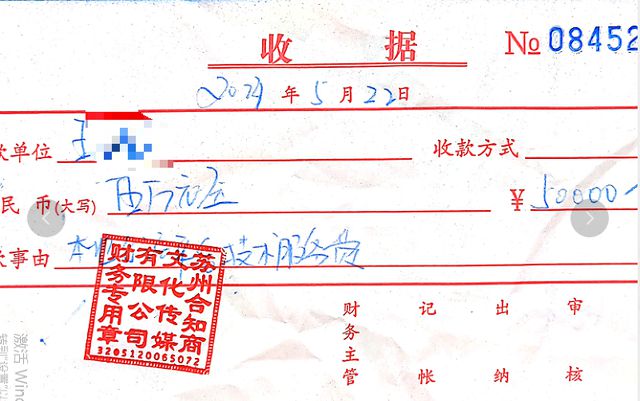 收 据
No 08452
年 5 月 22 日
款单位 王
收款方式
民 币(大写)
¥ 50000
事由 技术服务费
苏州合知商
文化传媒
有限公司
财务专用章
3205120065072
财务主管 记帐 出纳 审核
激活 Wind